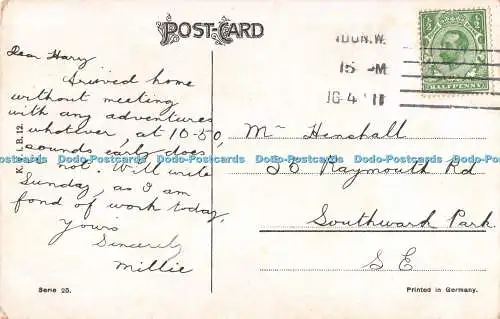 POST-CARD
Dear Harry
Arrived home
without meeting
with any adventures
whatever, at 10-50,
sounds early does
not. Will write
Sunday, as I am
fond of work today,
Yours
Sincerely
Millie
Mr Henshall
28 Raymouth Rd
Southwark Park
S E
N.W.
15 M
16 4 11
HALFPENNY
B.12.
Dodo-Postcards Dodo-Postcards Dodo-Postcards Dodo-Postcards Dodo-Postcards Dodo-Postcards
Serie 25.
Printed in Germany.